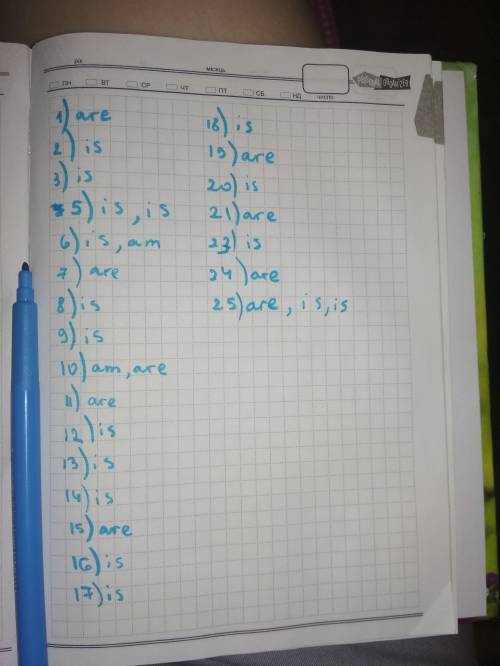 рік
місяць
ПН ВТ СР ЧТ ПТ СБ НД число
PERSONAL ORGANIZER
1) are
2) is
3) is
5) is, is
6) is, am
7) are
8) is
9) is
10) am, are
11) are
12) is
13) is
14) is
15) are
16) is
17) is
18) is
19) are
20) is
21) are
23) is
24) are
25) are, is, is